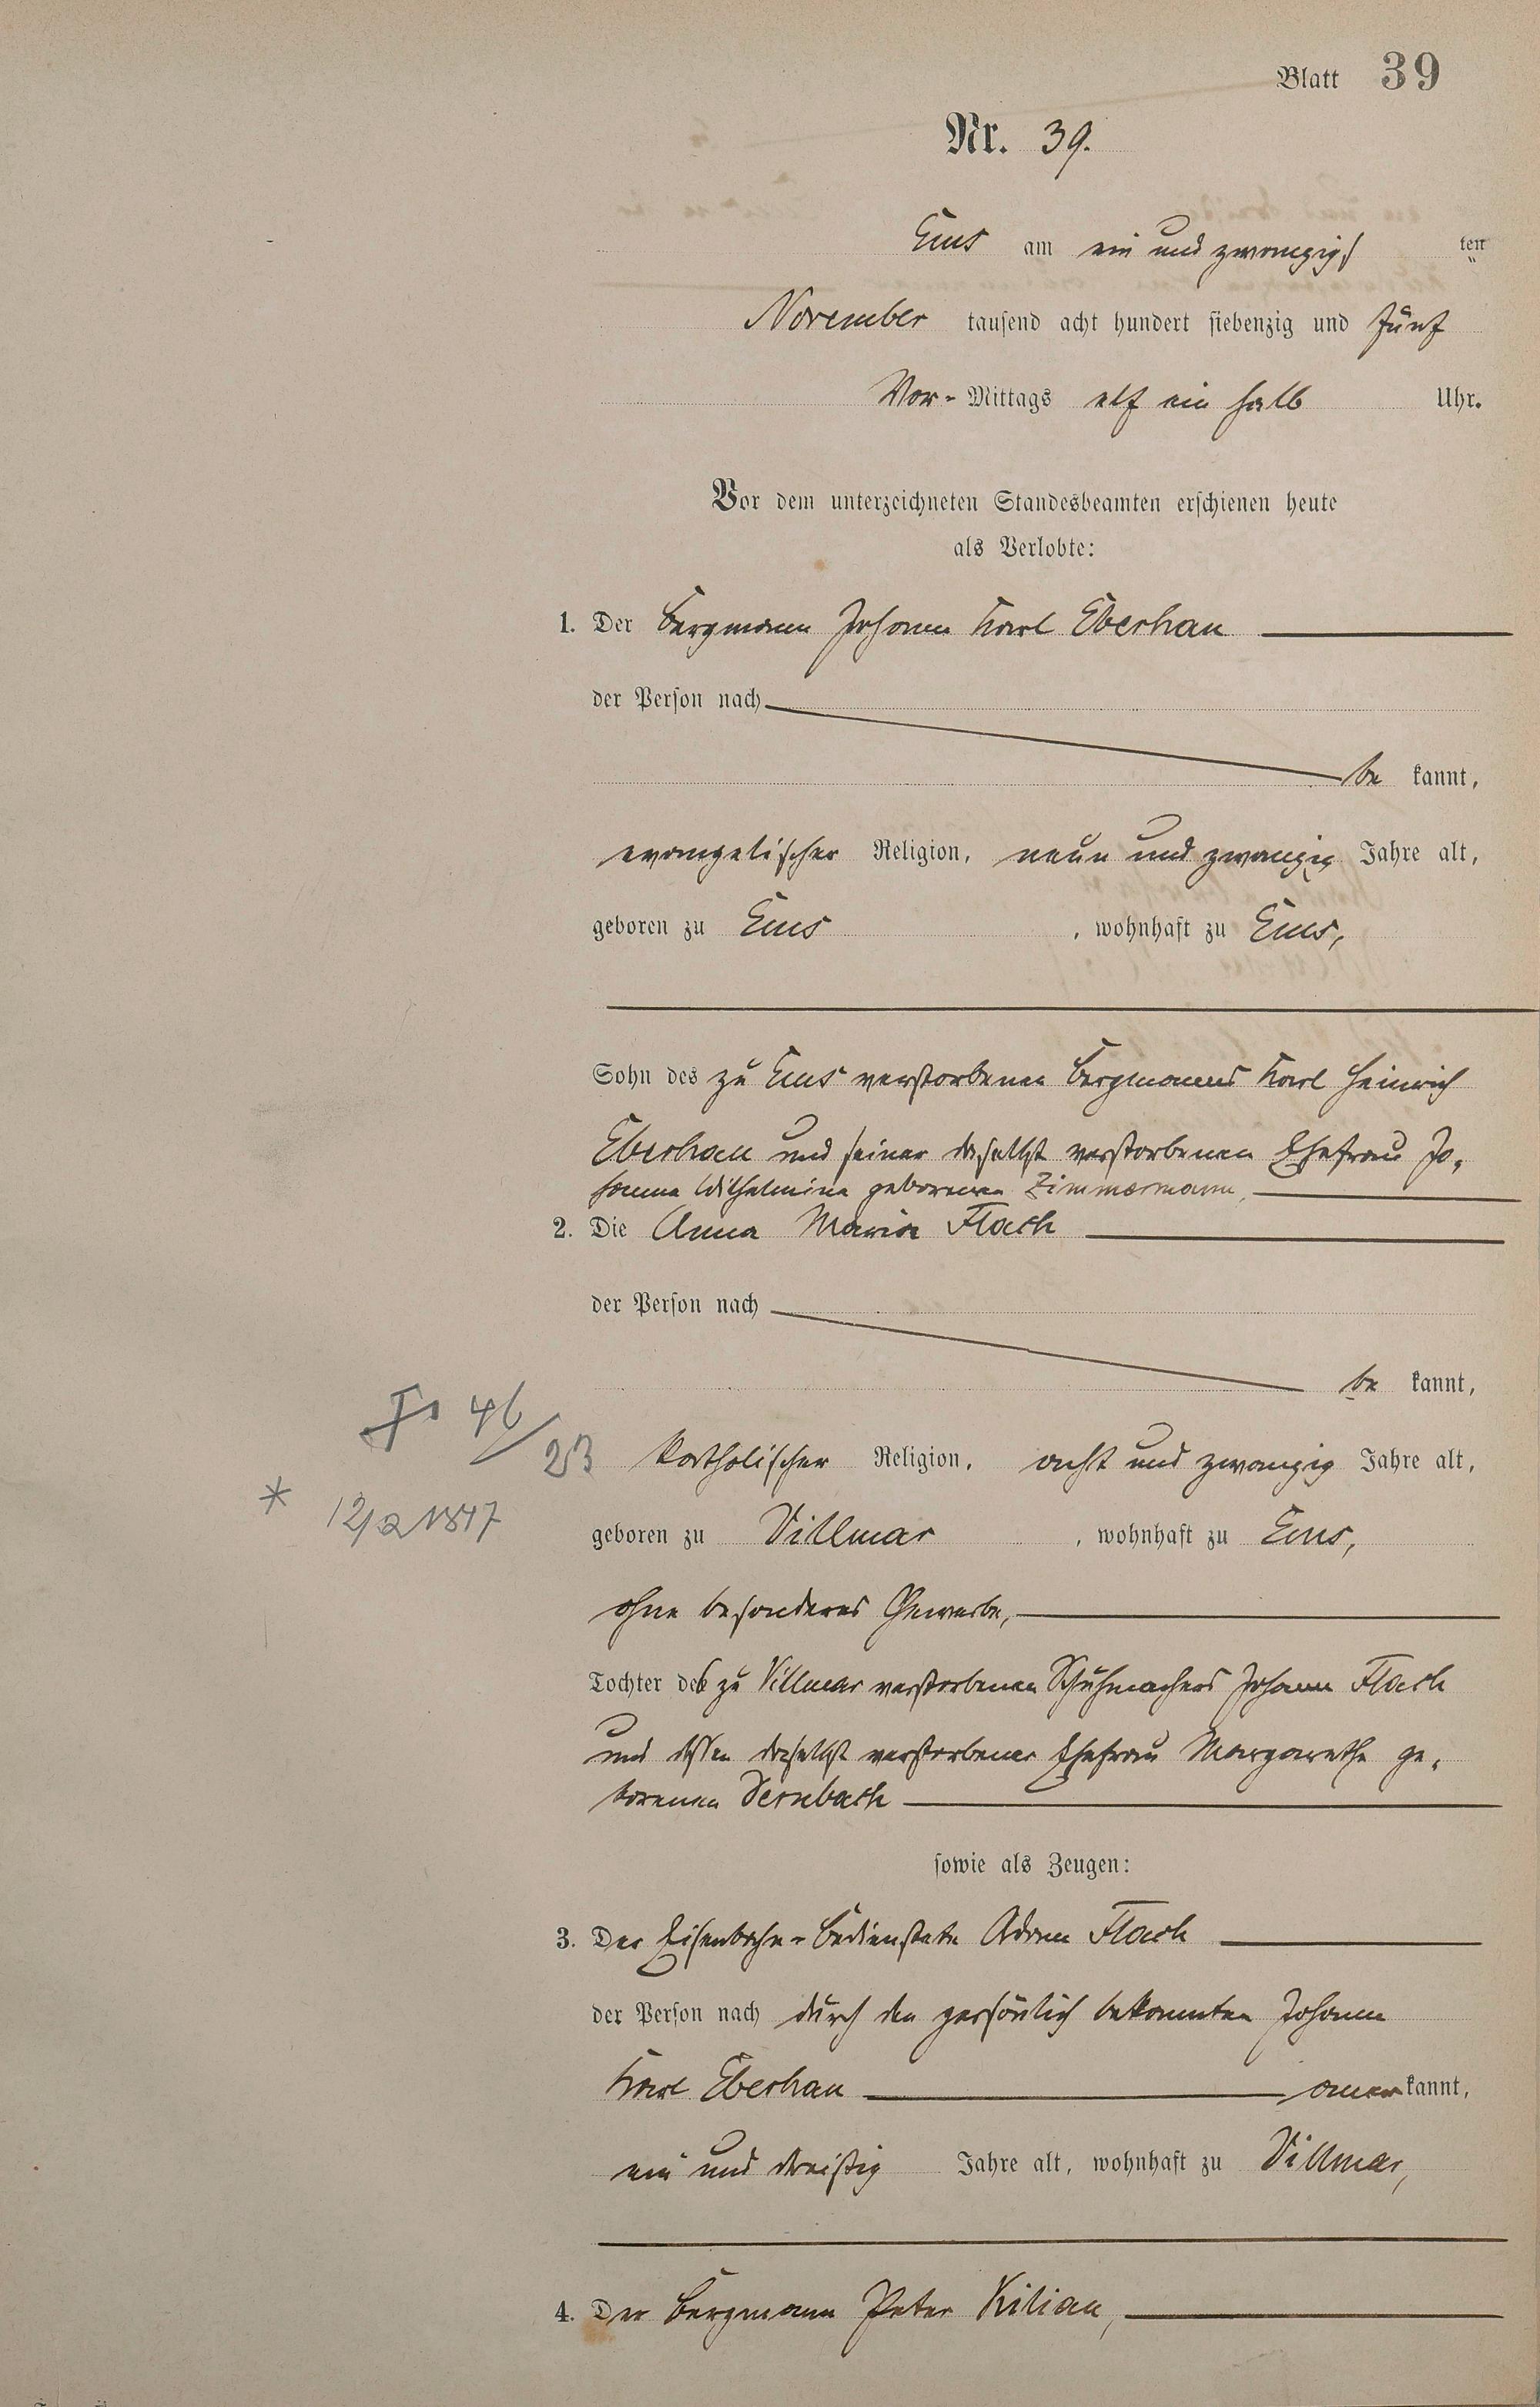 Blatt 39
Nr. 39.
Ems am ein und zwanzigs ten
November tausend acht hundert siebenzig und fünf
Vor-Mittags elf ein halb Uhr.
Vor dem unterzeichneten Standesbeamten erschienen heute
als Verlobte:
1. Der Bergmann Johann Karl Eberhan
der Person nach
be kannt,
evangelischer Religion, neun und zwanzig Jahre alt,
geboren zu Ems, wohnhaft zu Ems,
Sohn des zu Ems verstorbenen Bergmanns Karl Heinrich
Eberhan und seiner daselbst verstorbenen Ehefrau Jo-
hanna Wilhelmina geborenen Zimmermann,
2. Die Anna Maria Flach
der Person nach
be kannt,
46/23 katholischer Religion, acht und zwanzig Jahre alt,
* 12/2 1847
geboren zu Villmar, wohnhaft zu Ems,
ohne besonderes Gewerbe,
Tochter des zu Villmar verstorbenen Schuhmachers Johann Flach
und dessen daselbst verstorbener Ehefrau Margarethe ge-
borenen Dernbach
sowie als Zeugen:
3. Der Eisenbahn-Bedienstete Adam Flach
der Person nach durch den persönlich bekannten Johann
Karl Eberhan anerkannt,
ein und dreißig Jahre alt, wohnhaft zu Villmar,
4. Der Bergmann Peter Kilian,